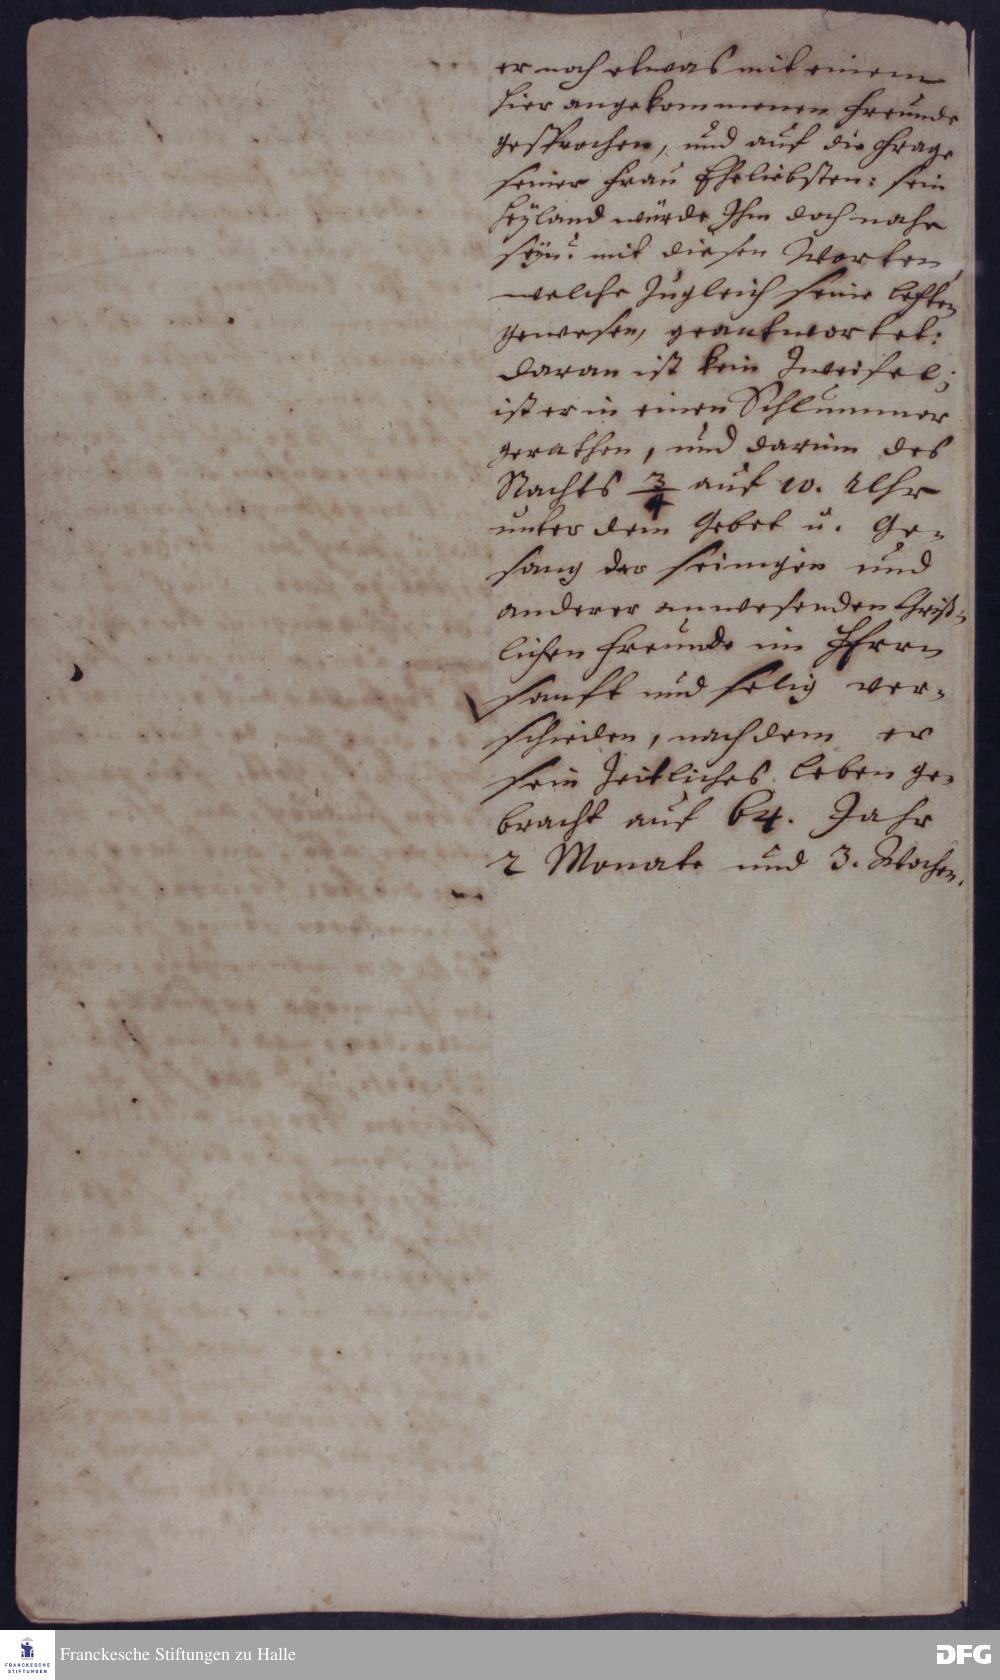 er noch etwas mit einem
hier angekommenen Freunde
gesprochen, und auf die Frage
seiner Frau Eheliebsten: sein
Heyland würde Ihm doch nahe
seyn? mit diesen Worten,
welche zugleich seine letzten
gewesen, geantwortet:
daran ist kein Zweifel;
ist er in einen Schlummer
gerathen, und darüm des
Nachts 3/4 auf 10. Uhr
unter dem Gebet u. Ge-
sang der seinigen und
anderer anwesenden Christ-
lichen Freunde im HErrn
sanft und selig ver-
schieden, nachdem er
sein Zeitliches Leben ge-
bracht auf 64. Jahr
2 Monate und 3. Wochen.
FRANCKESCHE
STIFTUNGEN
Franckesche Stiftungen zu Halle
DFG